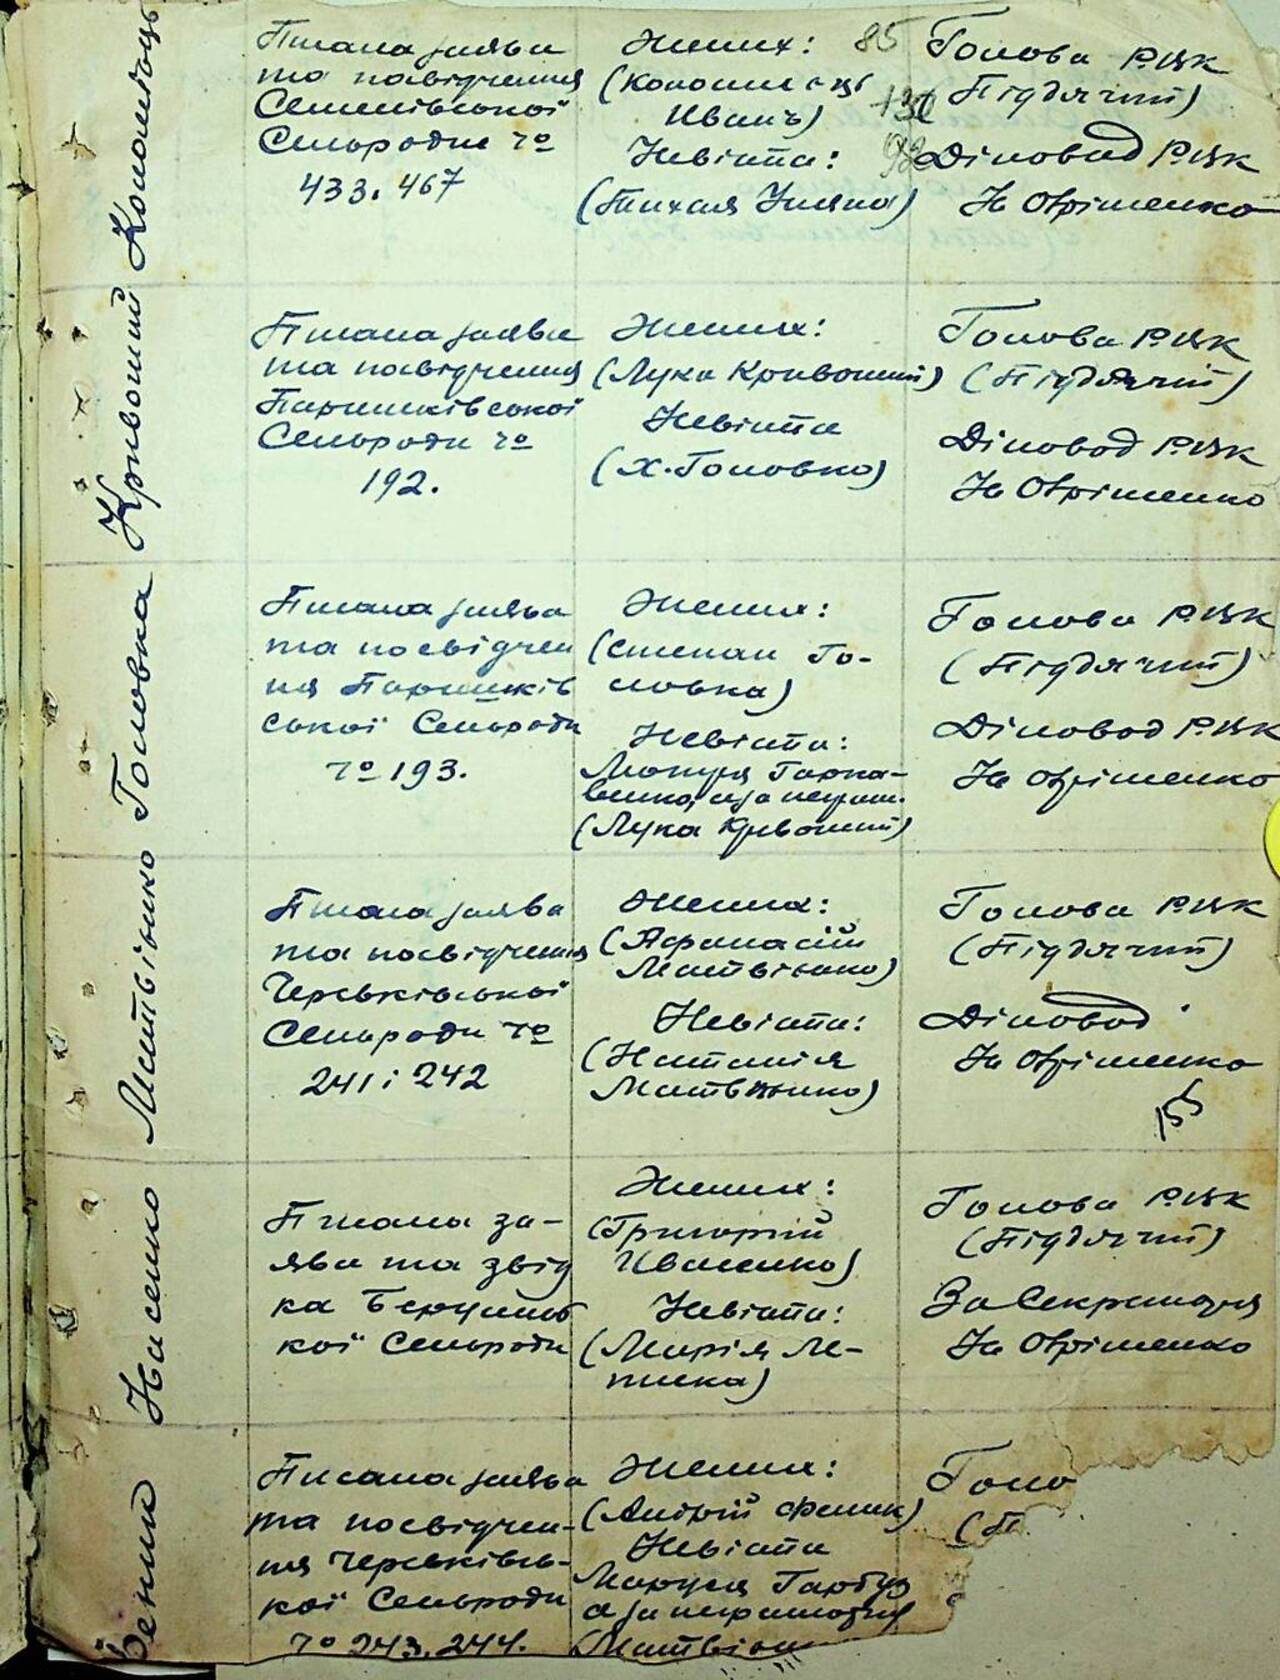 Писана заява
та посвідчення
Семенівської
Сельради №
433. 467
Жених:
(Коломиєць
Иванъ)
Невіста:
(Тихая Уляна)
85
Голова РЦК
(Піддячий)
Діловод РЦК
Ів Охріменко
Коломієць
Писана заява
та посвідчення
Паришківської
Сельради №
192.
Жених:
(Лука Кривоший)
Невіста
(Х. Головко)
Голова РЦК
(Піддячий)
Діловод РЦК
Ів Охріменко
Кривоший
Писана заява
та посвідчен
ня Паришків
ської Сельради
№ 193.
Жених:
(Степан Го-
ловка)
Невіста:
Мотуря Гарка-
венко, а за неграм.
(Лука Кривоший)
Голова РЦК
(Піддячий)
Діловод РЦК
Ів Охріменко
Головка
Писана заява
та посвідчення
Черевківської
Сельради №
241 і 242
Жених:
(Афанасій
Матвієнко)
Невіста:
(Наталія
Матвієнко)
Голова РЦК
(Піддячий)
Діловод
Ів Охріменко
155
Матвієнко
Писана за-
ява та звід
ка
кої Сельради
Жених:
(Григорій
Иваненко)
Невіста:
(Марія Ле-
пшека)
Голова РЦК
(Піддячий)
За Секретаря
Ів Охріменко
Писана заява
та посвідчен-
ня Черевківсь-
кої Сельради
№ 243. 244.
Жених:
(Андрій Феник)
Невіста
Маруся Гарбуз
а за неграмотну
(Матвієн
Голо
(П
Феник